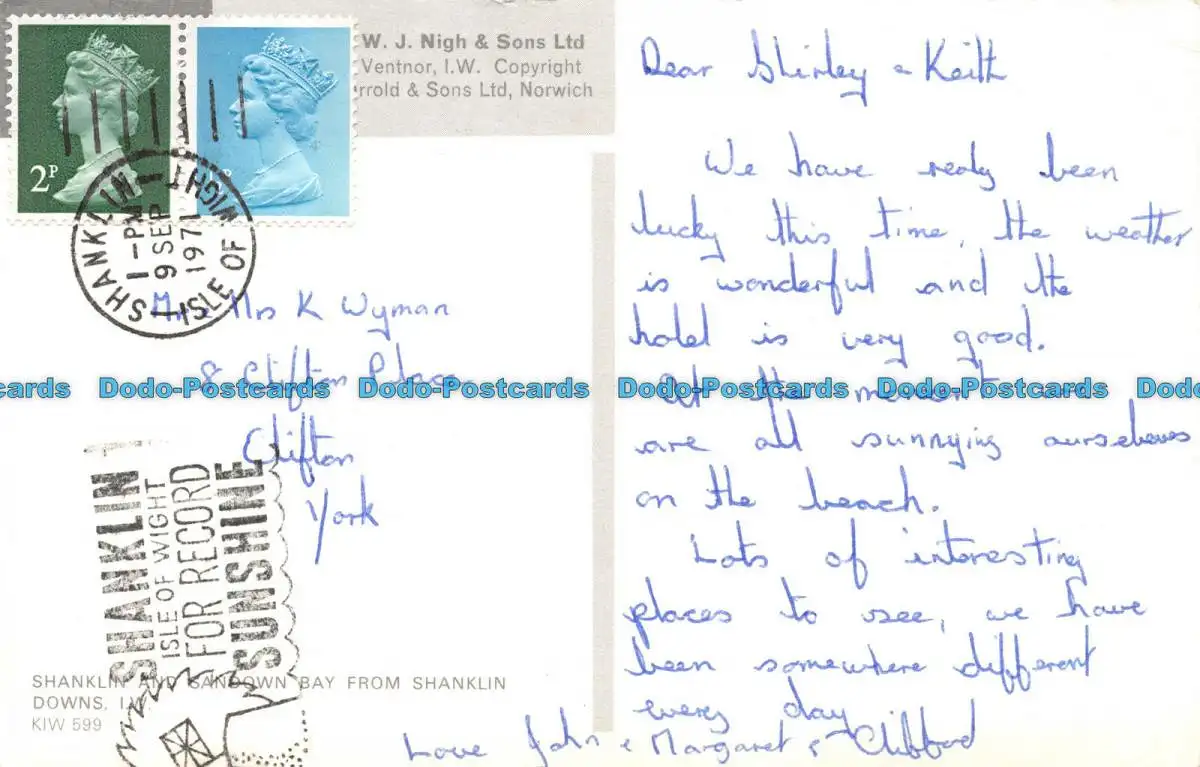 W. J. Nigh & Sons Ltd
Ventnor, I.W. Copyright
rrold & Sons Ltd, Norwich
2P
P
SHANKLIN
1-PM
9 SEP
1971
ISLE OF WIGHT
Mr & Mrs K Wyman
8 Clifton Place
Clifton
York
SHANKLIN
ISLE OF WIGHT
FOR RECORD
SUNSHINE
SHANKLIN AND SANDOWN BAY FROM SHANKLIN
DOWNS, I.W.
KIW 599
Dear Shirley & Keith
We have realy been
lucky this time, the weather
is wonderful and the
hotel is very good.
At the moment we
are all sunnying ourselves
on the beach.
Lots of interesting
places to see, we have
been somewhere different
every day
Love John & Margaret & Clifford
Dodo-Postcards Dodo-Postcards Dodo-Postcards Dodo-Postcards